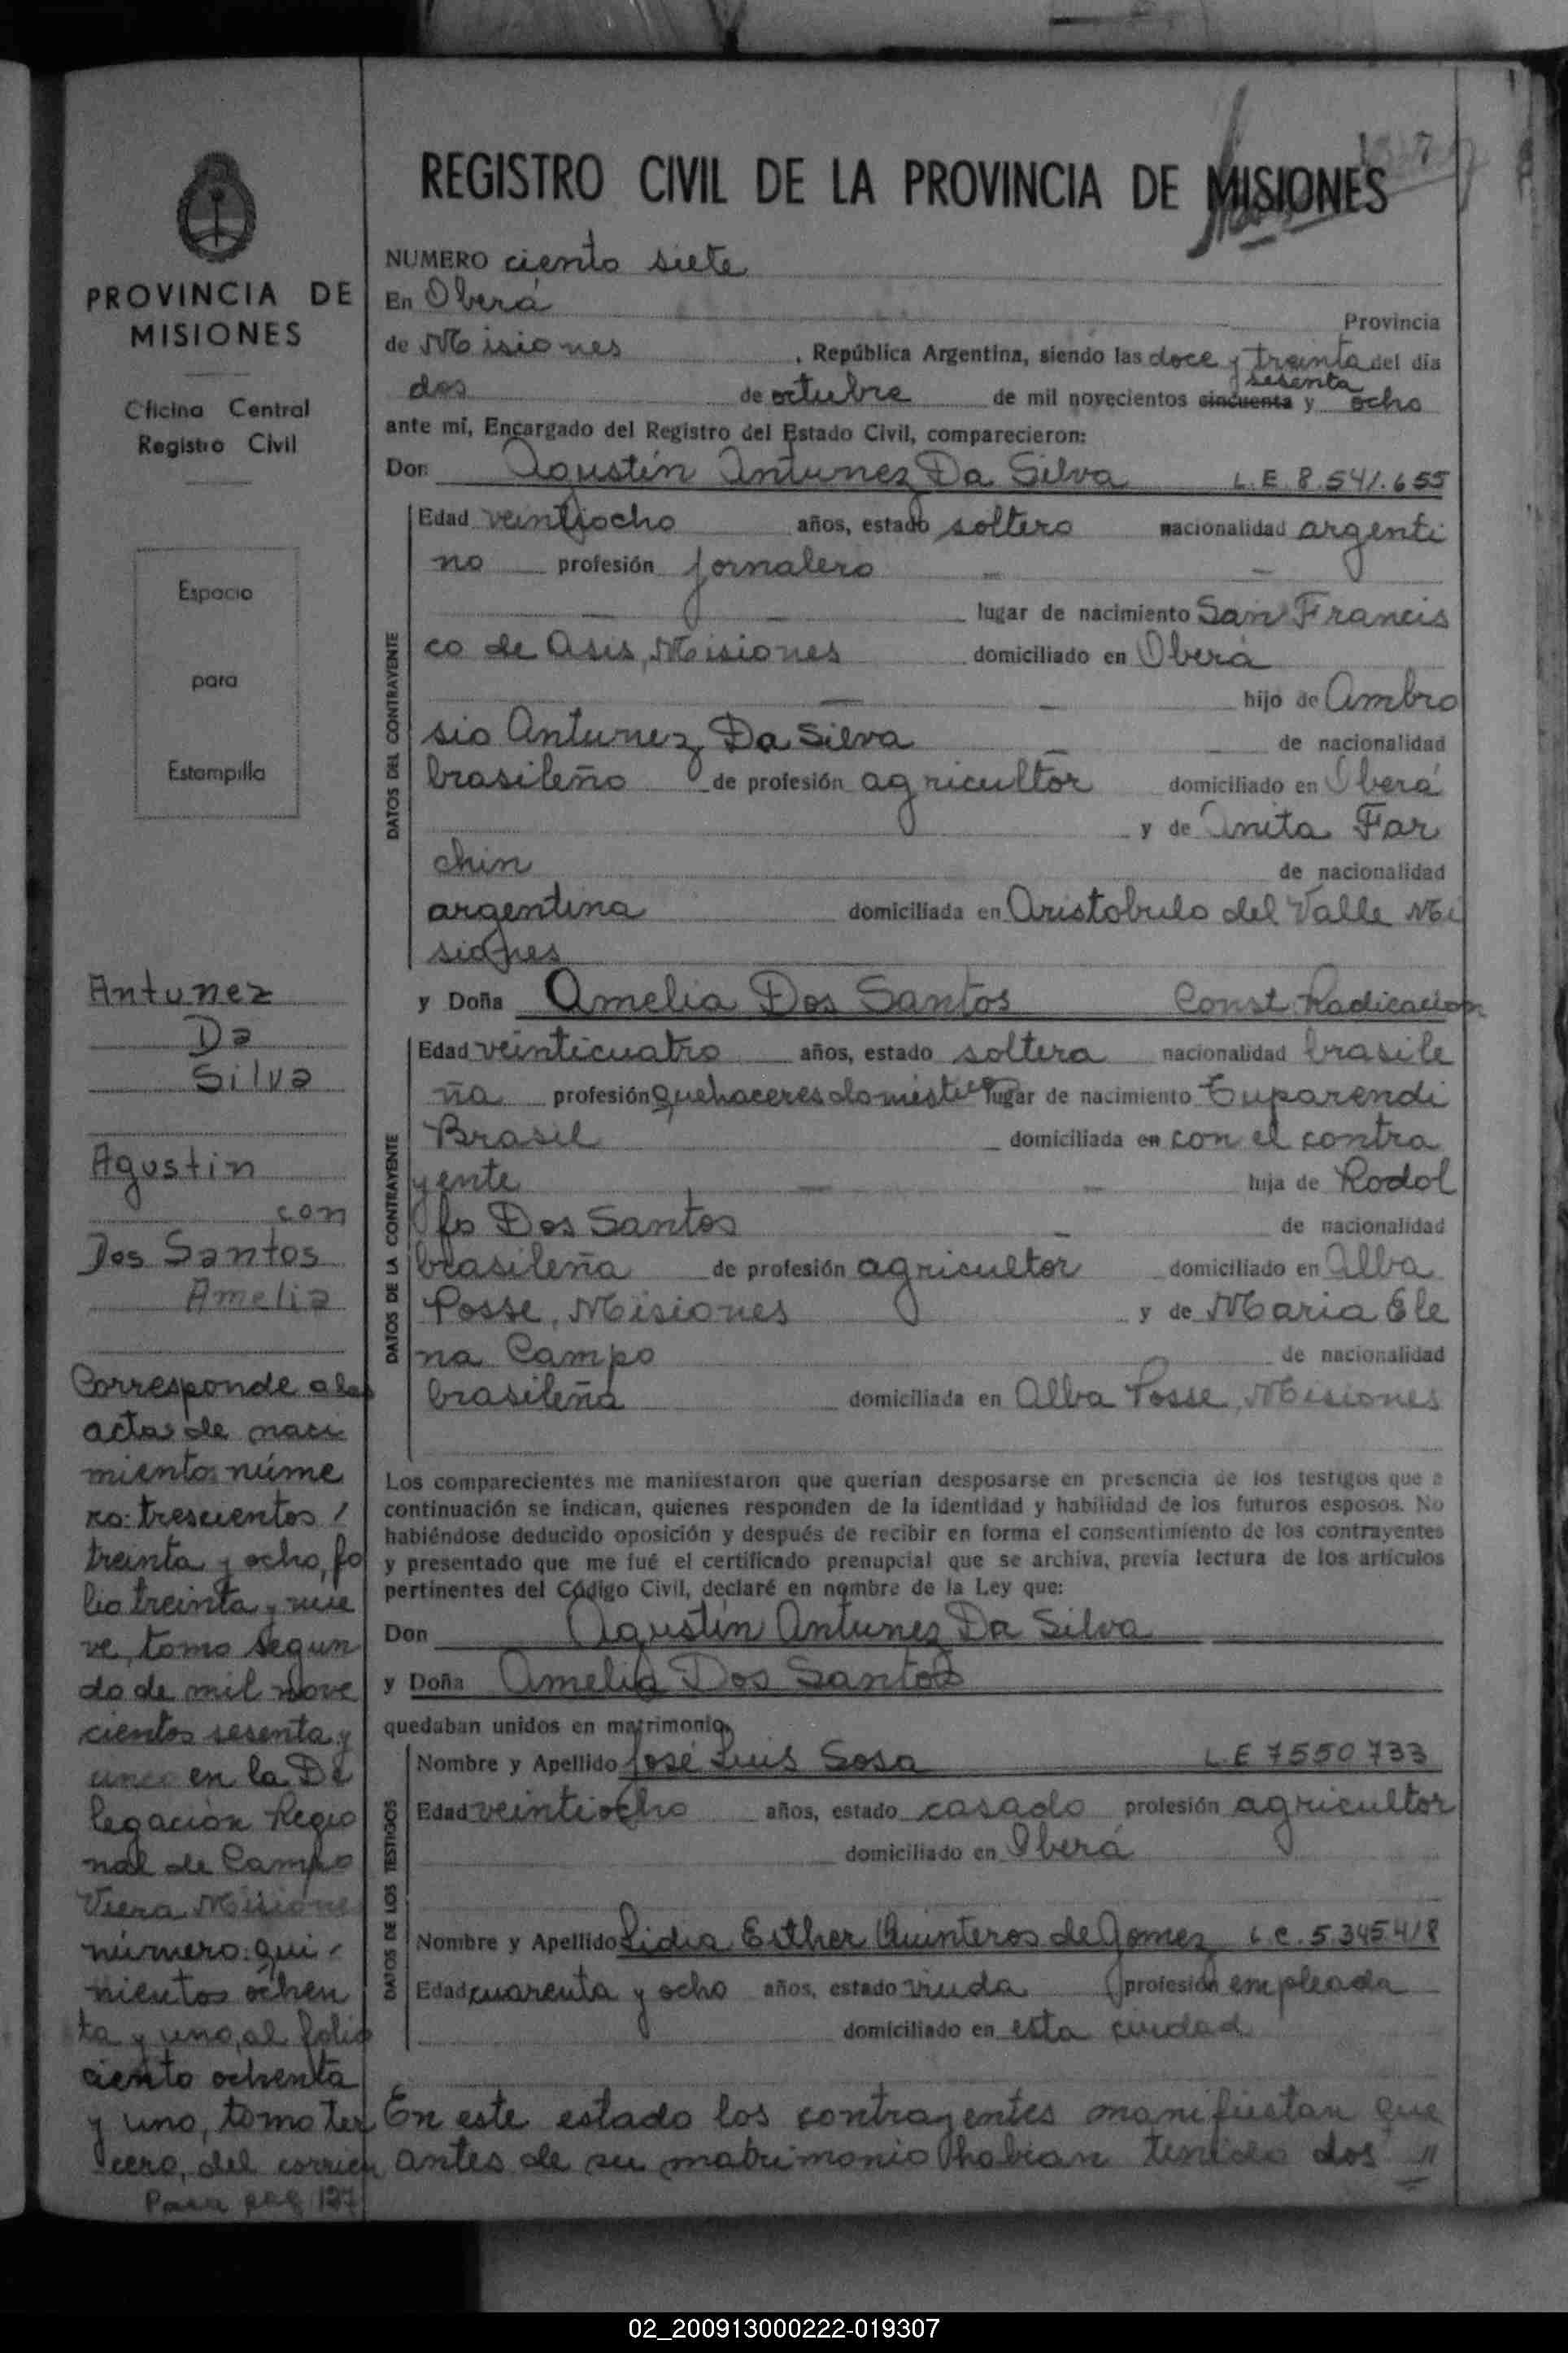 REGISTRO CIVIL DE LA PROVINCIA DE MISIONES
PROVINCIA DE
MISIONES
Oficina Central
Registro Civil
Espacio
para
Estampilla
Antunez
Da
Silva
Agustin
con
Dos Santos
Amelia
Corresponde a las
actas de naci
miento núme
ro: trescientos
treinta y ocho, fo
lio treinta y nue
ve, tomo segun
do de mil nove
cientos sesenta y
cinco en la De
legación Regio
nal de Campo
Viera Misiones
número: qui
nientos ochen
ta y uno, al folio
ciento ochenta
y uno, tomo ter
cero, del corrien
Pasa pag 127
NUMERO ciento siete
En Oberá
Provincia
de Misiones, República Argentina, siendo las doce y treinta del día
sesenta
dos de octubre de mil novecientos cincuenta y ocho
ante mí, Encargado del Registro del Estado Civil, comparecieron:
Don Agustín Antunez Da Silva L.E. 8.541.655
DATOS DEL CONTRAYENTE
Edad veintiocho años, estado soltero nacionalidad argenti
no profesión jornalero
lugar de nacimiento San Francis
co de Asis, Misiones domiciliado en Oberá
hijo de Ambro
sio Antunez Da Silva de nacionalidad
brasileño de profesión agricultor domiciliado en Oberá
y de Anita Far
chin de nacionalidad
argentina domiciliada en Aristobulo del Valle Mi
siones
y Doña Amelia Dos Santos Const. Radicacion
DATOS DE LA CONTRAYENTE
Edad veinticuatro años, estado soltera nacionalidad brasile
ña profesión quehaceres domésticos lugar de nacimiento Tuparendi
Brasil domiciliada en con el contra
yente hija de Rodol
fo Dos Santos de nacionalidad
brasileña de profesión agricultor domiciliado en Alba
Posse, Misiones y de Maria Ele
na Campo de nacionalidad
brasileña domiciliada en Alba Posse, Misiones
Los comparecientes me manifestaron que querían desposarse en presencia de los testigos que a
continuación se indican, quienes responden de la identidad y habilidad de los futuros esposos. No
habiéndose deducido oposición y después de recibir en forma el consentimiento de los contrayentes
y presentado que me fué el certificado prenupcial que se archiva, previa lectura de los artículos
pertinentes del Código Civil, declaré en nombre de la Ley que:
Don Agustín Antunez Da Silva
y Doña Amelia Dos Santos
quedaban unidos en matrimonio,
DATOS DE LOS TESTIGOS
Nombre y Apellido José Luis Sosa L.E 7550733
Edad veintiocho años, estado casado profesión agricultor
domiciliado en Oberá
Nombre y Apellido Lidia Esther Quinteros de Gomez L.C. 5.345.418
Edad cuarenta y ocho años, estado viuda profesión empleada
domiciliado en esta ciudad
En este estado los contrayentes manifiestan que
antes de su matrimonio habian tenido dos "
02_200913000222-019307